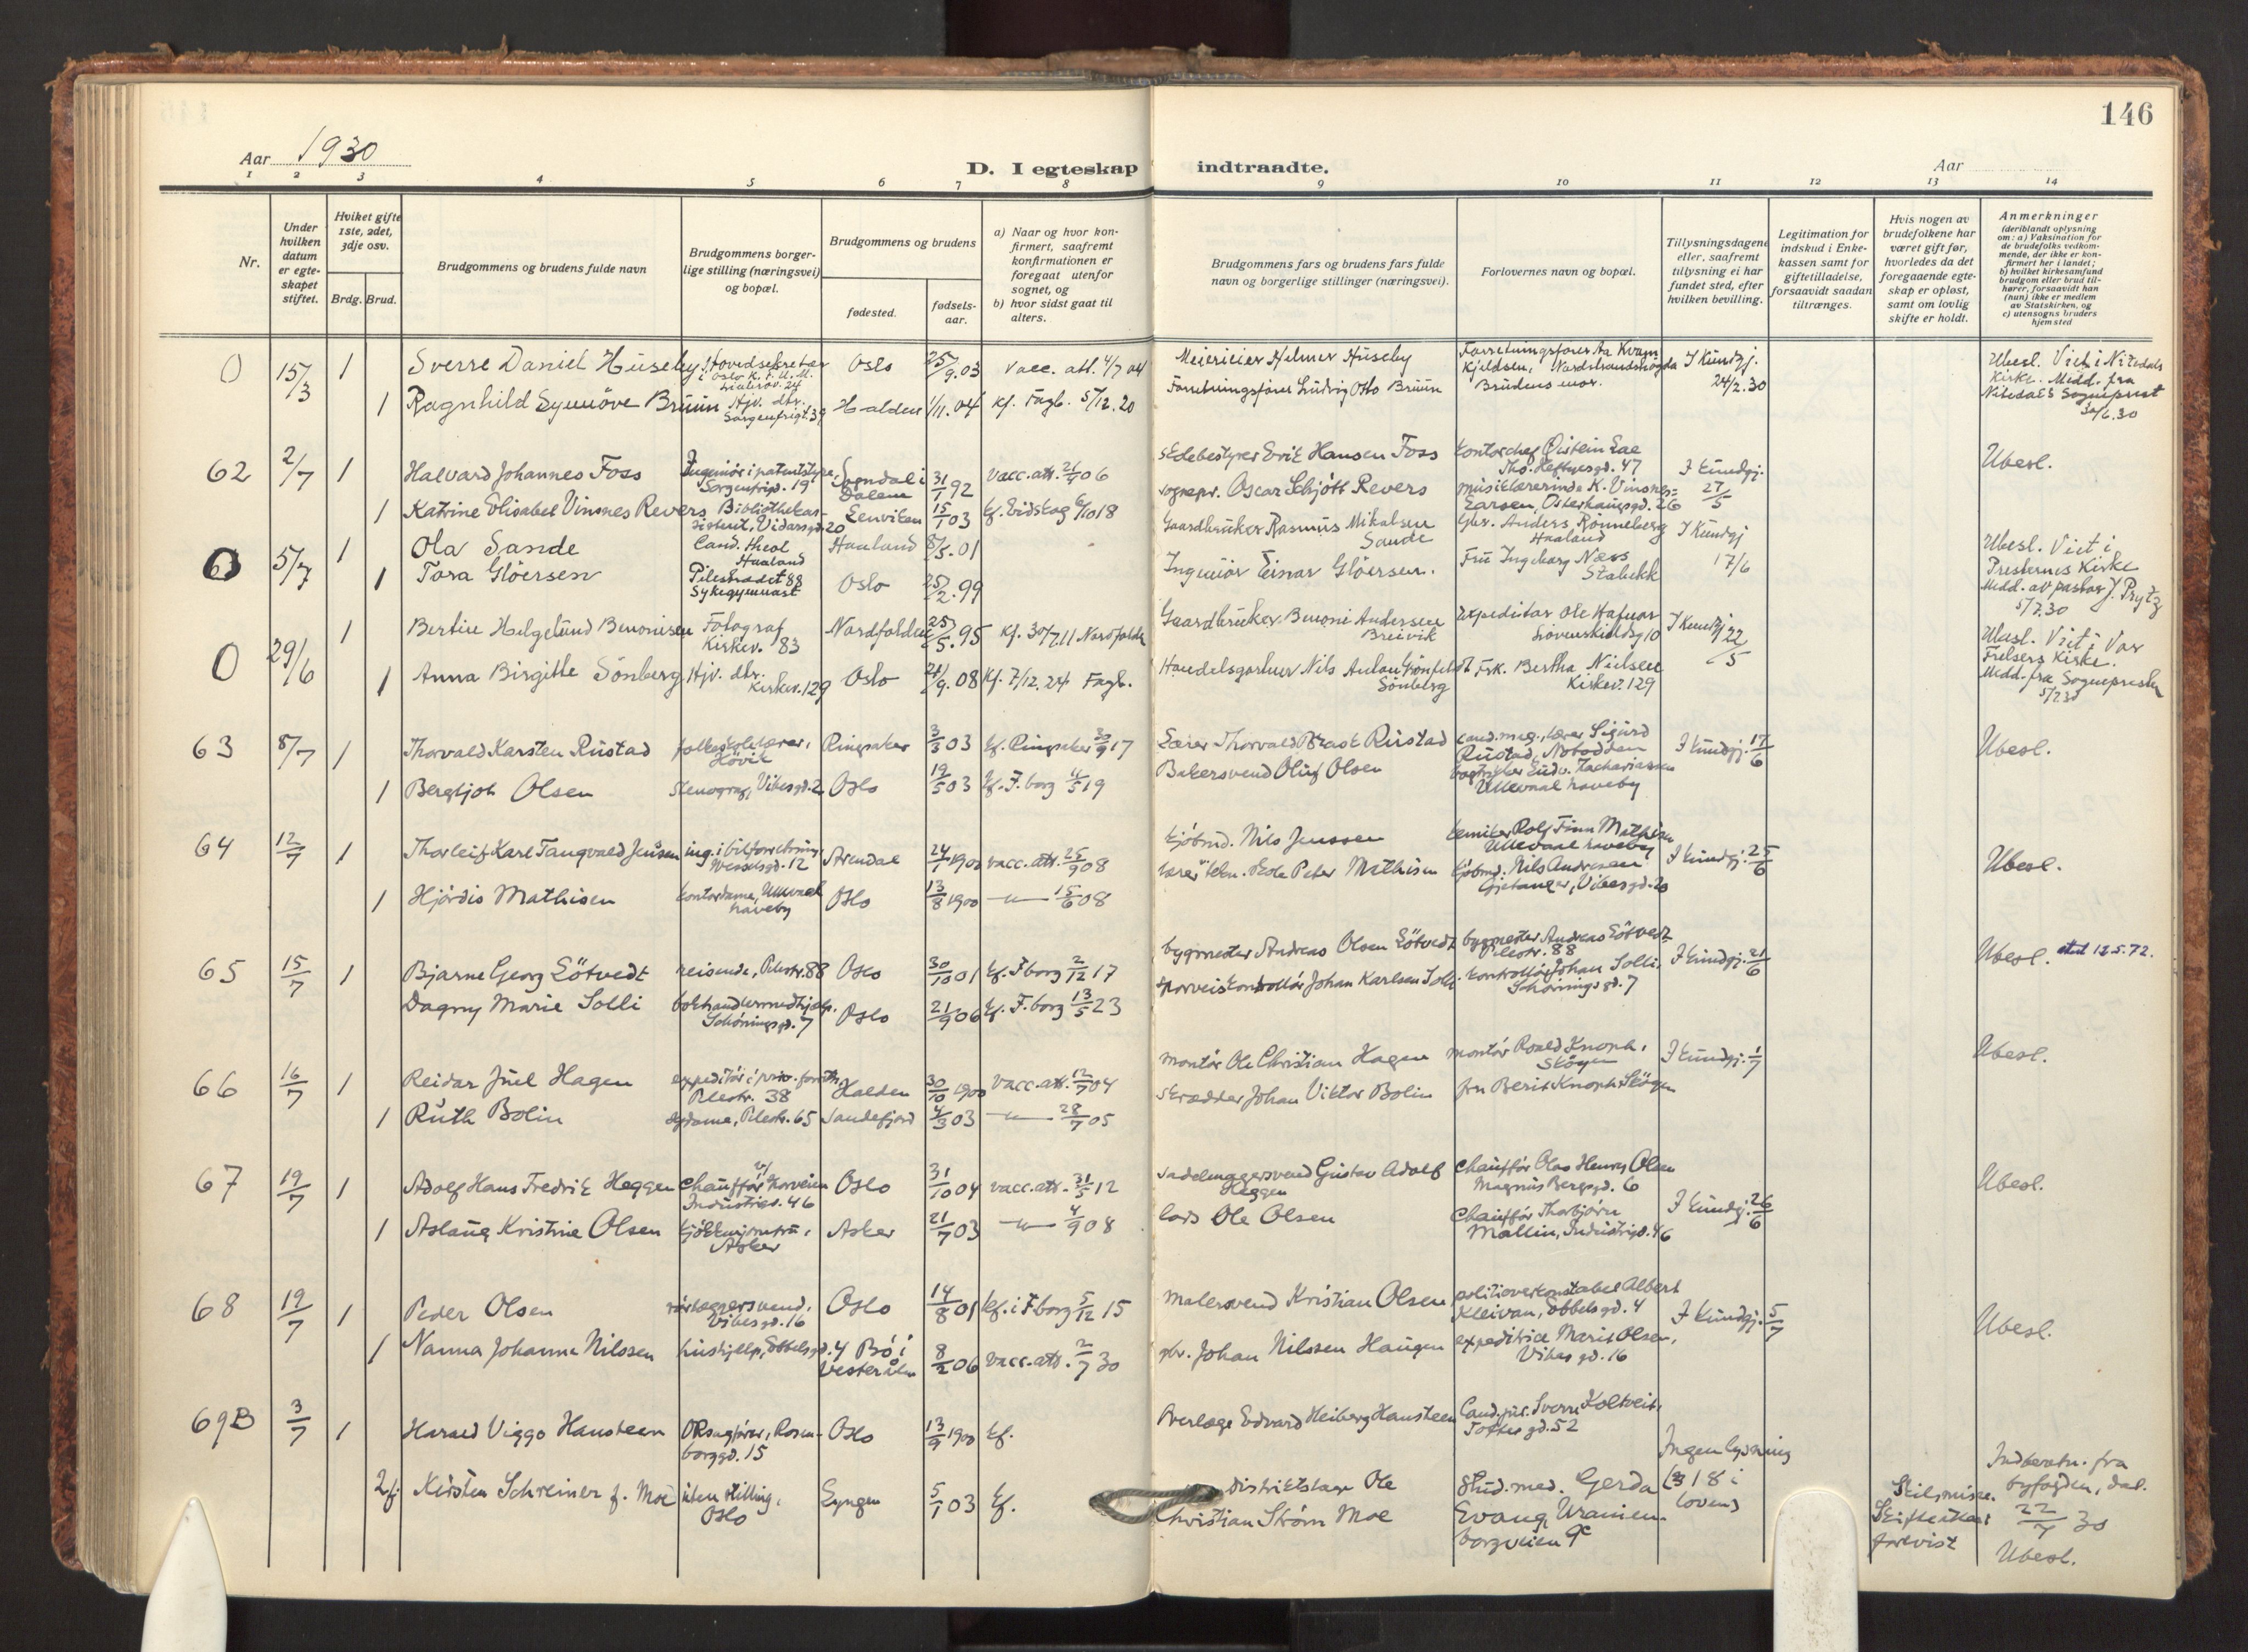 146
Aar 1930
D. I egteskap indtraadte.
Aar
1 2 3 4 5 6 7 8 9 10 11 12 13 14
Nr.
Under hvilken datum er egte-skapet stiftet.
Hvilket gifte 1ste, 2det, 3dje osv.
Brdg. Brud.
Brudgommens og brudens fulde navn
Brudgommens borger-lige stilling (næringsvei) og bopæl.
Brudgommens og brudens
fødested.
fødsels-aar.
a) Naar og hvor kon-firmert, saafremt konfirmationen er foregaat utenfor sognet, og
b) hvor sidst gaat til alters.
Brudgommens fars og brudens fars fulde navn og borgerlige stillinger (næringsvei).
Forlovernes navn og bopæl.
Tillysningsdagene eller, saafremt tillysning ei har fundet sted, efter hvilken bevilling.
Legitimation for indskud i Enke-kassen samt for giftetilladelse, forsaavidt saadan tiltrænges.
Hvis nogen av brudefolkene har været gift før, hvorledes da det foregaaende egte-skap er opløst, samt om lovlig skifte er holdt.
Anmerkninger
(deriblandt oplysning om: a) Vaksination for de brudefolks vedkom-mende, der ikke er kon-firmert her i landet; b) hvilket kirkesamfund brudgom eller brud til-hører, forsaavidt han (hun) ikke er medlem av Statskirken, og c) utensogns bruders hjemsted
0 15/3 1 Sverre Daniel Huseby Hovedsekretær i Oslo K.F.U.M. Oslo 25/9.03 Vacc. att. 4/7 04 Meierieier Helmer Huseby Forretningsfører Aa Kvam Kjeldsen, Nordstrandshøgda I Kundgj. 24/2.30 Ubesl. Viet i Nitedals Kirke. Medd. fra Nitedals Sogneprest 30/6.30
1 Ragnhild Synnöve Bruun Hjv. dtr. Sorgenfrigt. 39 Halden 1/11.04 Kf. Fagb. 5/12.20 Forretningsfører Ludvig Otto Bruun Brudens mor.
62 2/7 1 Halvard Johannes Foss Ingeniør i patentstyre, Sorgenfrigd. 19 Sogndal i Dalene 31/1 92 Vacc. att. 21/9 06 Skolebestyrer Erik Hansen Foss Kontorchef Øistein Lae Tho. Heftyesgd. 47 I kundgj. 27/5 Ubesl.
1 Katrine Elisabet Vinsnes Revers Bibliothekas-sistent, Vidarsgd. 20 Lenviken 15/1 03 kf. Eidskog 6/10 18 sognepr. Oscar Schjött Revers musiklærerinde K. Vinsnes-Larsen, Osterhausgd. 26
0 5/7 1 Ola Sande Cand. theol Haaland Haaland 8/5.01 Gaardbruker Rasmus Mikalsen Sande Gbr. Anders Rønneberg Haaland I Kundgj 17/6 Ubesl. Viet i Presternes Kirke Medd. av pastor J. Prytz 5/7.30
1 Tora Glöersen Pilestrædet 88 Sykegymnast Oslo 25/2.99 Ingeniör Einar Glöersen. Fru Ingeborg Næss Stabekk
0 29/6 1 Bertin Helgelund Benonisen Fotograf Kirkev. 83 Nordfolden 25/5.95 Kf. 30/7.11 Nordfolden Gaardbruker Benoni Andersen Breivik Expeditør Ole Hafnor Løvenskioldsg 10 I Kundgj 22/5 Ubesl. Viet i Vor Frelsers Kirke. Medd. fra Sognepresten 5/7.30
1 Anna Birgitte Sönberg Hjv. dtr. Kirkev. 129 Oslo 21/9.08 Kf. 7/12.24 Fagb. Handelsgartner Nils Anton Sönberg Frk. Bertha Nielsen Kirkev. 129
63 8/7 1 Thorvald Karsten Rustad folkeskolelærer, Hövik Ringsaker 3/3 03 kf. Ringsaker 30/9 17 Lærer Thorvald Rustad cand. mag., lærer Sigurd Rustad, Notodden I kundgj. 17/6 Ubesl.
1 Bergljot Olsen stenograf, Vibesgd. 2 Oslo 19/5 03 kf. F. borg 4/5 19 Bakersvend Oluf Olsen bogtrykker Ludv. Zachariassen Ullevaal haveby
64 12/7 1 Thorleif Karl Tangvald Jenssen ing. i bilforretning, Wesselsgd. 12 Arendal 24/7 1900 vacc. att. 25/9 08 kjöbmd. Nils Jenssen kemiker Rolf Finn Mathisen Ullevaal haveby I kundgj. 25/6 Ubesl.
1 Hjördis Mathisen kontordame, Ullevaal haveby Oslo 13/8 1900 —"— 15/6 08 lærer tekn. skole Peter Mathisen kjöbmd. Nils Andresen Gjetanger, Vibesgd. 20
65 15/7 1 Bjarne Georg Lötvedt reisende, Pilestr. 88 Oslo 30/10 01 kf. F borg 2/12 17 bygmester Andreas Olsen Lötvedt bygmester Andreas Lötvedt Pilestr. 88 I kundgj. 21/6 Ubesl. død 12.5.72.
Dagny Marie Solli bokhandlermedhjelp. Schöningsgd. 7 Oslo 21/9 06 kf. F. borg 13/5 23 sporveiskontrollör Johan Karlsen Solli kontrollör Johan Solli, Schöningsgd. 7
66 16/7 1 Reidar Juel Hagen expeditör i Pilestr. 38 Halden 30/10 1900 vacc. att. 12/7 04 montör Ole Christian Hagen montör Roald Knoph, Sköyen I kundgj. 1/7 Ubesl.
1 Ruth Bolin Pilestr. 65 Sandefjord 4/3 03 —"— 28/7 05 skrædder Johan Viktor Bolin fru Berit Knoph Sköyen
67 19/7 1 Adolf Hans Fredrik Heggen Chauffør v/ Industrigd. 46 Oslo 31/10 04 vacc. att. 31/5 12 sadelmagersvend Gustav Adolf Heggen Chauffør Olav Henry Olsen Magnus Bergsgd. 6 I kundgj. 26/6 Ubesl.
1 Aslaug Kristine Olsen Asker Asker 21/7 03 —"— 4/9 08 lods Ole Olsen Chauffør Thorbjörn Mallin, Industrigd. 46
68 19/7 1 Peder Olsen rörlæggersvend, Vibesgd. 16 Oslo 14/8 01 kf. i F borg 5/12 15 Malersvend Kristian Olsen politioverkonstabel Albert Kleivan, Ebbelsgd. 4 I kundgj. 5/7 Ubesl.
1 Nanna Johanna Nilssen hushjelp, Ebbelsgd. 4 Bö i Vesterålen 8/2 06 vacc. att. 2/7 30 gbr. Johan Nilssen Haugen expeditrice Marit Olsen, Vibesgd. 16
69B 3/7 1 Harald Viggo Hansteen ORsagfører, Rosen-borggd. 15 Oslo 13/9 1900 kf. Overlæge Edvard Heiberg Hansteen Cand. jur. Sverre Koltveit, Toftesgd. 52 Ingen lysning (§ 18 i loven) Indberetn. fra byfogden, dat. 22/7 30 Ubesl.
2 f. Kirsten Schreiner f. Moe uten stilling, Oslo Lyngen 5/1 03 kf. Distriktslæge Ole Christian Strøm Moe Stud. med. Gerda Evang, Uranien-borgveien 9c Skilsmisse. Skifteattest forevist